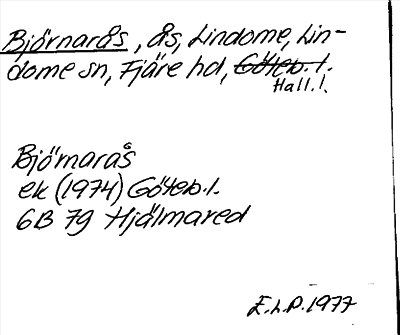 Björnarås, ås, Lindome, Lin-
dome sn, Fjäre hd, Göteb. l.
Hall. l.
Björnarås
ek (1974) Göteb. l.
6B 7g Hjälmared
E.L.P. 1977